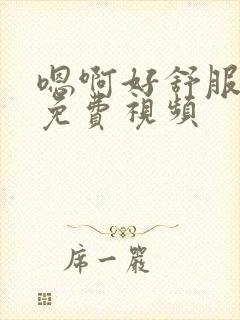 嗯啊好舒服
免費視頻
席一嚴